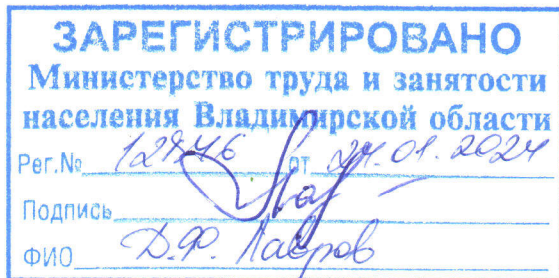 ЗАРЕГИСТРИРОВАНО
Министерство труда и занятости
населения Владимирской области
Рег.№ от 24.01.2024
Подпись
ФИО Д.Ф. Лавров